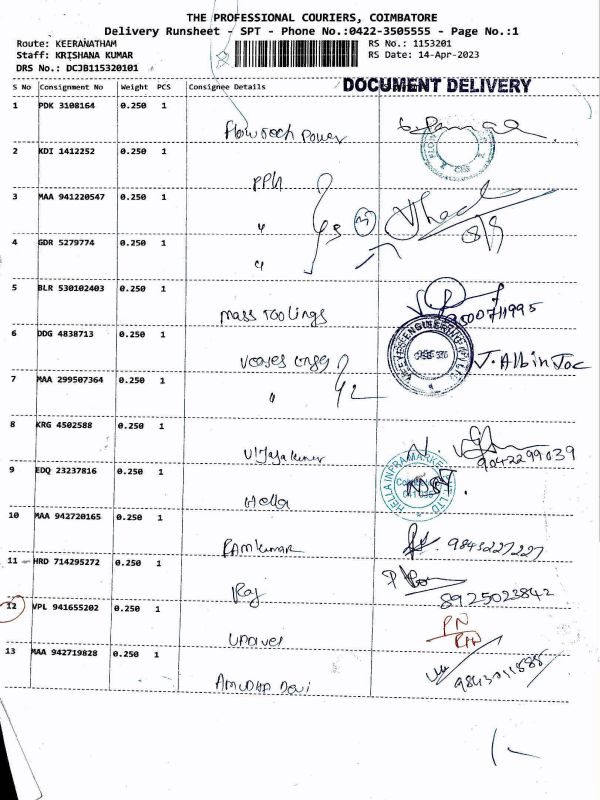 THE PROFESSIONAL COURIERS, COIMBATORE
Delivery Runsheet - SPT - Phone No.:0422-3505555 - Page No.:1
Route: KEERANATHAM
RS No.: 1153201
Staff: KRISHANA KUMAR
RS Date: 14-Apr-2023
DRS No.: DCJB115320101
DOCUMENT DELIVERY
S No Consignment No Weight PCS Consignee Details
1 PDK 3108164 0.250 1
Flowtech Power
2 KDI 1412252 0.250 1
PPH
3 MAA 941220547 0.250 1
"
4 GDR 5279774 0.250 1
"
5 BLR 530102403 0.250 1
mass Toolings
9500711995
6 DDG 4838713 0.250 1
J. Albin Joc
7 MAA 299507364 0.250 1
"
8 KRG 4502588 0.250 1
Vijayakumar
9042299039
9 EDQ 23237816 0.250 1
Hella
10 MAA 942720165 0.250 1
RAMkumar 9843227227
11 HRD 714295272 0.250 1
Raj
8925023842
12 VPL 941655202 0.250 1
13 MAA 942719828 0.250 1
AMUDHA Devi